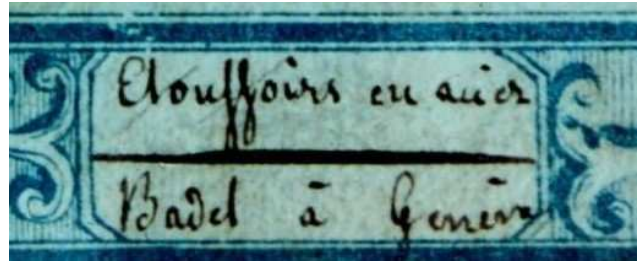 Etouffoirs en acier
Badel à Genève